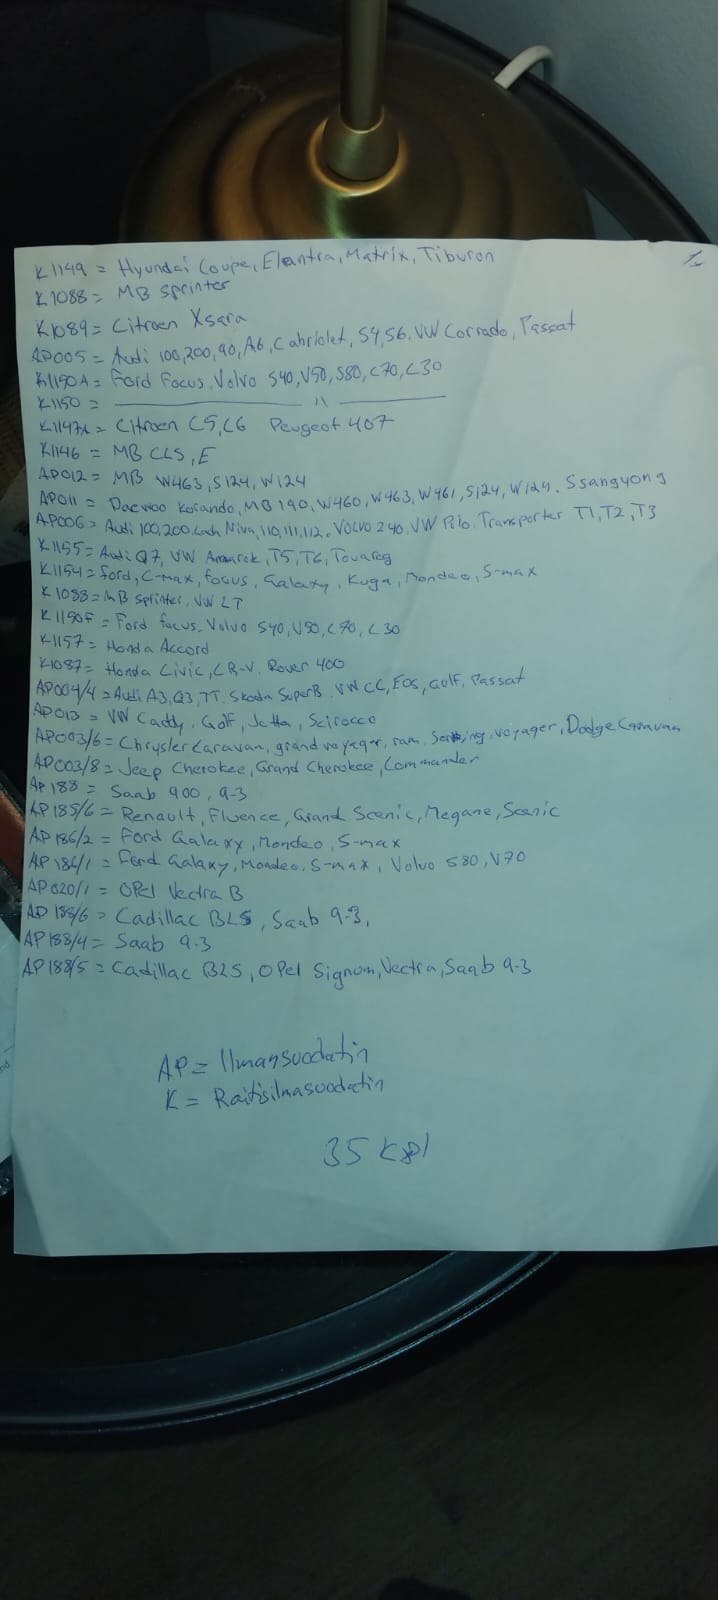 K1149 = Hyundai Coupe, Elantra, Matrix, Tiburon
K1088 = MB Sprinter
K1089 = Citroen Xsara
AP005 = Audi 100,200,90,A6, Cabriolet, S4,S6, VW Corrado, Passat
K1150A = Ford Focus, Volvo S40,V50,S80,C70,C30
K1150 = ——— 11 ———
K1147A = Citroen C5,C6 Peugeot 407
K1146 = MB CLS, E
AP012 = MB W463, S124, W124
AP011 = Daewoo Korando, MB 190, W460, W463, W461, S124, W124. Ssangyong
AP006 = Audi 100,200. Lada Niva, 110,111,112. VOLVO 240. VW Polo. Transporter T1, T2, T3
K1155 = Audi Q7, VW Amarok, T5, T6, Touareg
K1154 = Ford, C-max, focus, Galaxy, Kuga, Mondeo, S-max
K1088 = MB Sprinter, VW LT
K1150F = Ford focus. Volvo S40, V50, C70, C30
K1157 = Honda Accord
K1087 = Honda Civic, CR-V. Rover 400
AP004/4 = Audi A3, Q3, TT. Skoda SuperB. VW CC, EOS, Golf. Passat
AP013 = VW Caddy. Golf, Jetta, Scirocco
AP003/6 = Chrysler Caravan, grand voyager, ram, voyager, Dodge Caravan
AP003/8 = Jeep Cherokee, Grand Cherokee, Commander
AP188 = Saab 900, 9-3
AP185/6 = Renault, Fluence, Grand Scenic, Megane, Scenic
AP186/2 = Ford Galaxy, Mondeo, S-max
AP186/1 = Ford Galaxy, Mondeo, S-max, Volvo S80, V70
AP020/1 = OPel Vectra B
AP188/6 = Cadillac BLS, Saab 9-3,
AP188/4 = Saab 9-3
AP188/5 = Cadillac BLS, OPel Signum, Vectra, Saab 9-3
AP = Ilmansuodatin
K = Raitisilmasuodatin
35 kpl